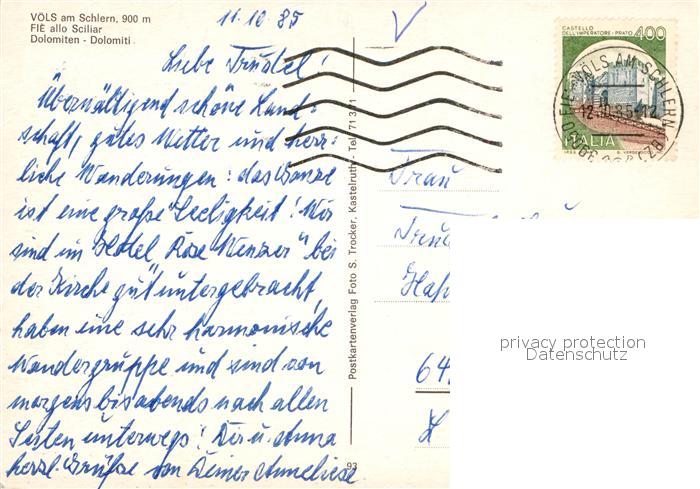 VÖLS am Schlern, 900 m
FIÈ allo Sciliar
Dolomiten - Dolomiti
11.10.85
Liebe Trudel!
Überwältigend schöne Land-
schaft, gutes Wetter und herr-
liche Wanderungen: das Ganze
ist eine große Seeligkeit! Wir
sind im "Hotel Rose Wenzer" bei
der Kirche gut untergebracht,
haben eine sehr harmonische
Wandergruppe und sind von
morgens bis abends nach allen
Seiten unterwegs! Dir u. Anna
herzl. Grüße von Deiner Anneliese
93
Postkartenverlag Foto S. Trocker, Kastelruth - Tel. 71 3
CASTELLO
DELL'IMPERATORE - PRATO
400
ITALIA
VÖLS AM SCHLERN
12.10.85-12
Frau
64
privacy protection
Datenschutz